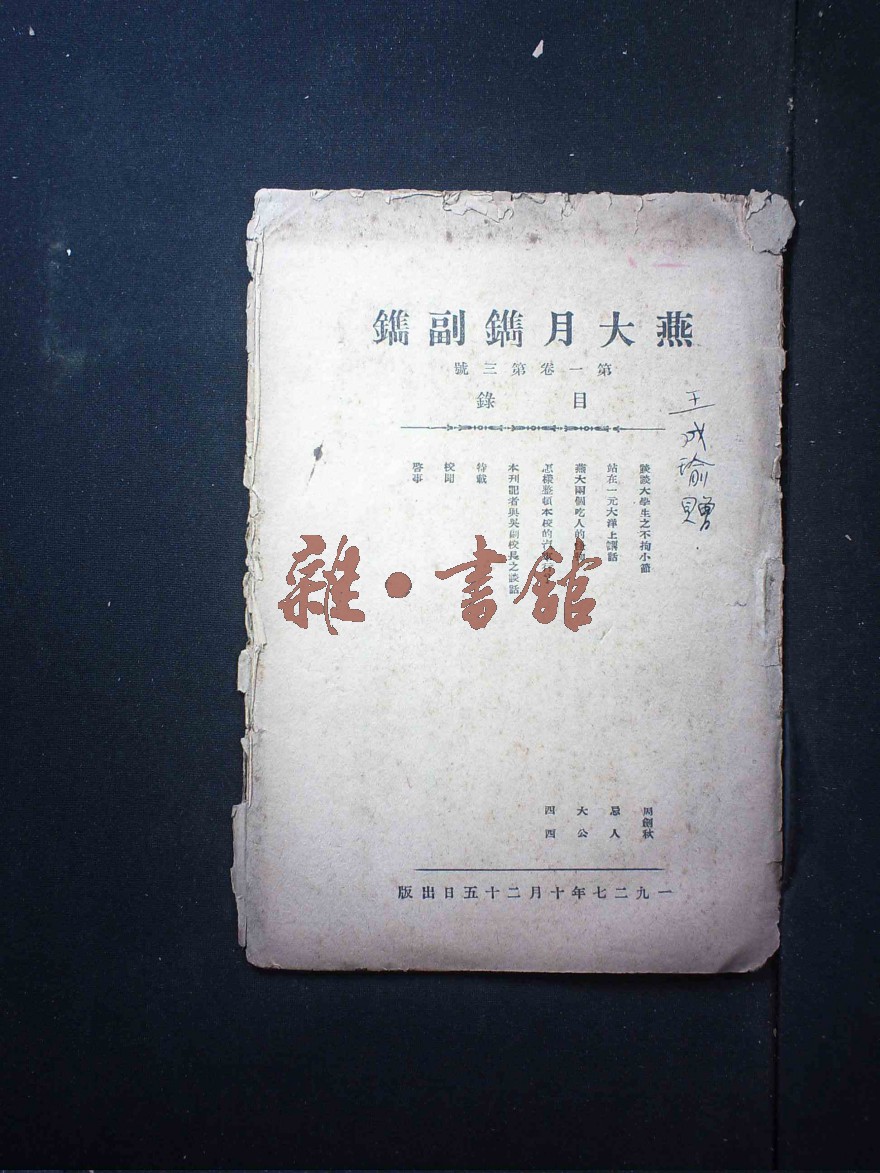 燕大月鐫副鐫
第一卷第三號
目錄
談談大學生之不拘小節
站在一元大洋上講話
燕大兩個吃人的
怎樣整頓本校的
本刊記者與吳副校長之談話
特載
校聞
啓事
周創秋
忌人
大公
四四
一九二七年十月二十五日出版
王成瑜贈
雜·書館